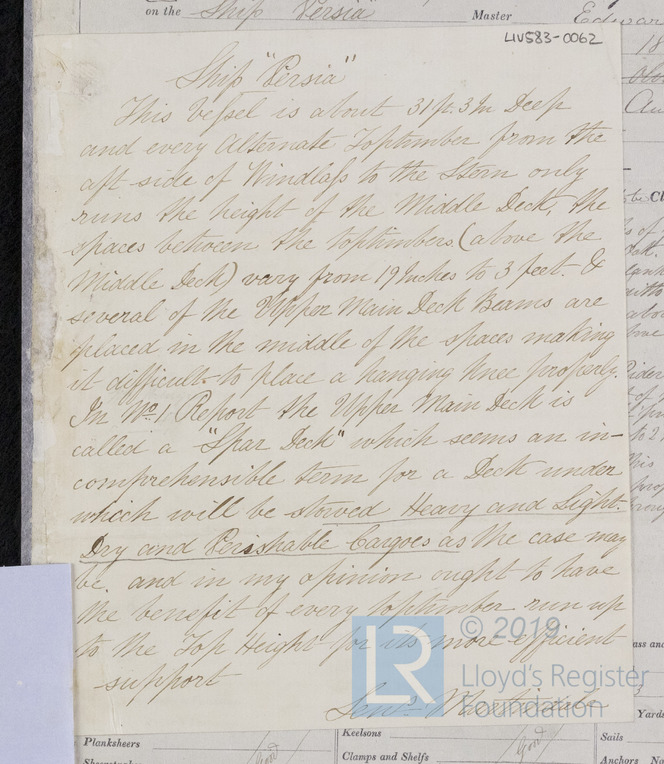 on the Ship Persia Master Edwar
LIV583-0062
Ship "Persia"
This Vessel is about 31 ft. 3 In Deep
and every Alternate Toptimber from the
aft side of Windlass to the Stern only
runs the height of the Middle Deck, the
spaces between the toptimbers (above the
Middle Deck) vary from 19 Inches to 3 feet. &
several of the Upper Main Deck Beams are
placed in the middle of the spaces making
it difficult to place a hanging knee properly.
In No. 1 Report the Upper Main Deck is
called a "Spar Deck" which seems an in-
comprehensible term for a Deck under
which will be stowed Heavy and Light.
Dry and Perishable Cargoes as the case may
be. and in my opinion ought to have
the benefit of every toptimber run up
to the Top Height for its more efficient
support
© 2019
LR
Lloyd's Register
Foundation
Planksheers
Keelsons
Good
Clamps and Shelfs
Good
Yards
Sails
Anchors No